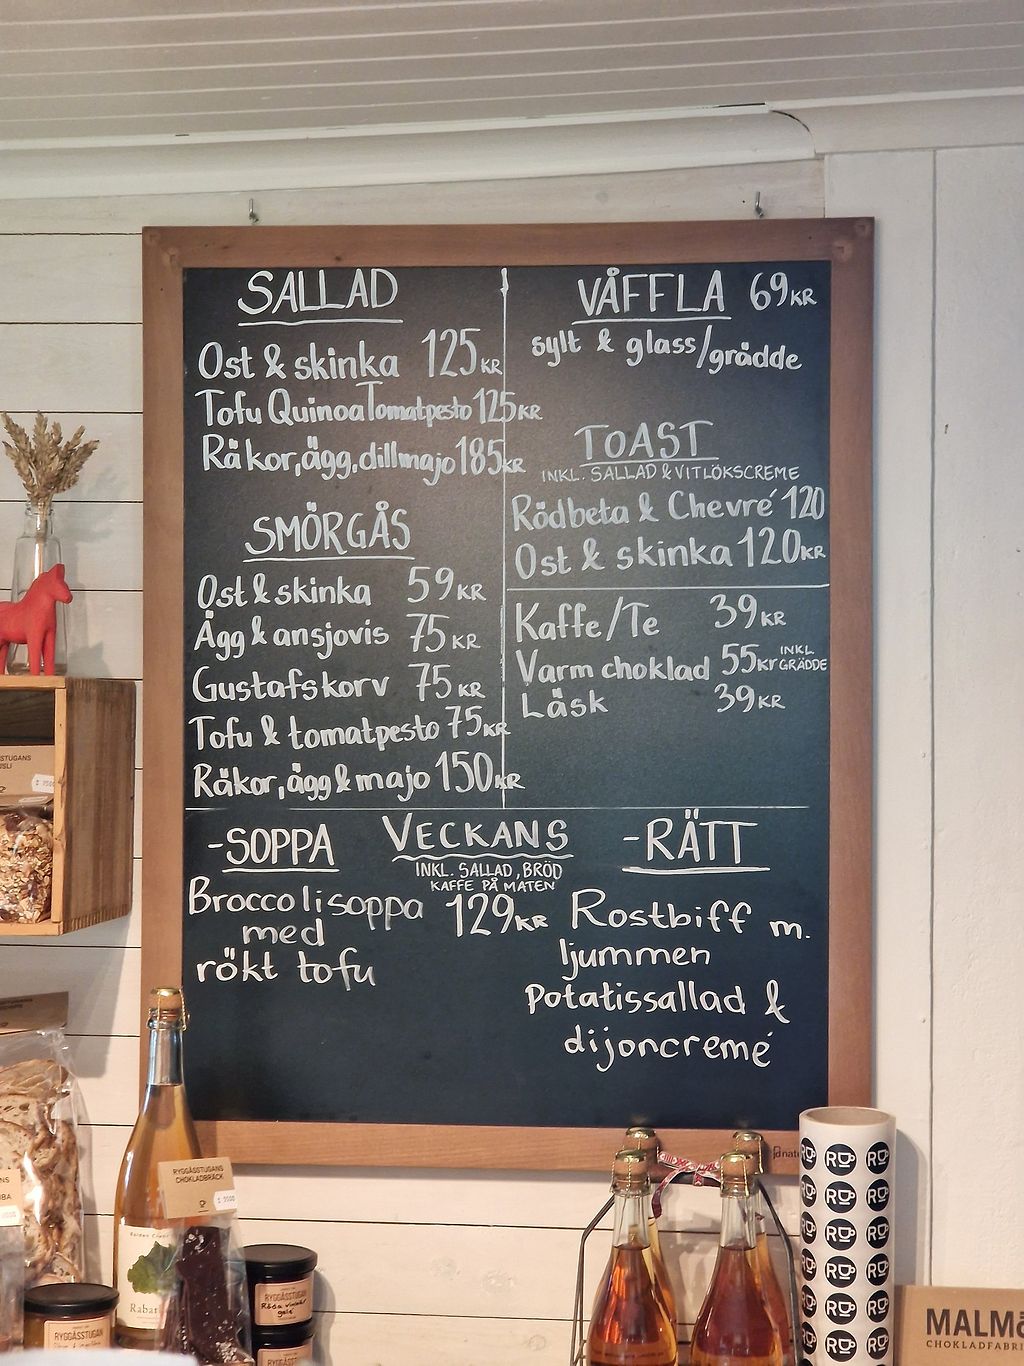 SALLAD
Ost & skinka 125KR
Tofu Quinoa Tomatpesto 125KR
Räkor, ägg, dillmajo 185KR
SMÖRGÅS
Ost & skinka 59KR
Ägg & ansjovis 75KR
Gustafskorv 75KR
Tofu & tomatpesto 75KR
Räkor, ägg & majo 150KR
VÅFFLA 69KR
sylt & glass/grädde
TOAST
INKL. SALLAD & VITLÖKSCREME
Rödbeta & Chevré 120
Ost & skinka 120KR
Kaffe/Te 39KR
Varm choklad 55Kr INKL GRÄDDE
Läsk 39KR
VECKANS
INKL. SALLAD, BRÖD
KAFFE PÅ MATEN
129KR
-SOPPA
Broccolisoppa
med
rökt tofu
-RÄTT
Rostbiff m.
ljummen
potatissallad &
dijoncremé
RYGGÅSSTUGANS
CHOKLADBRÄCK
RYGGÅSSTUGAN
RYGGÅSSTUGAN
MALM
CHOKLADFABRI